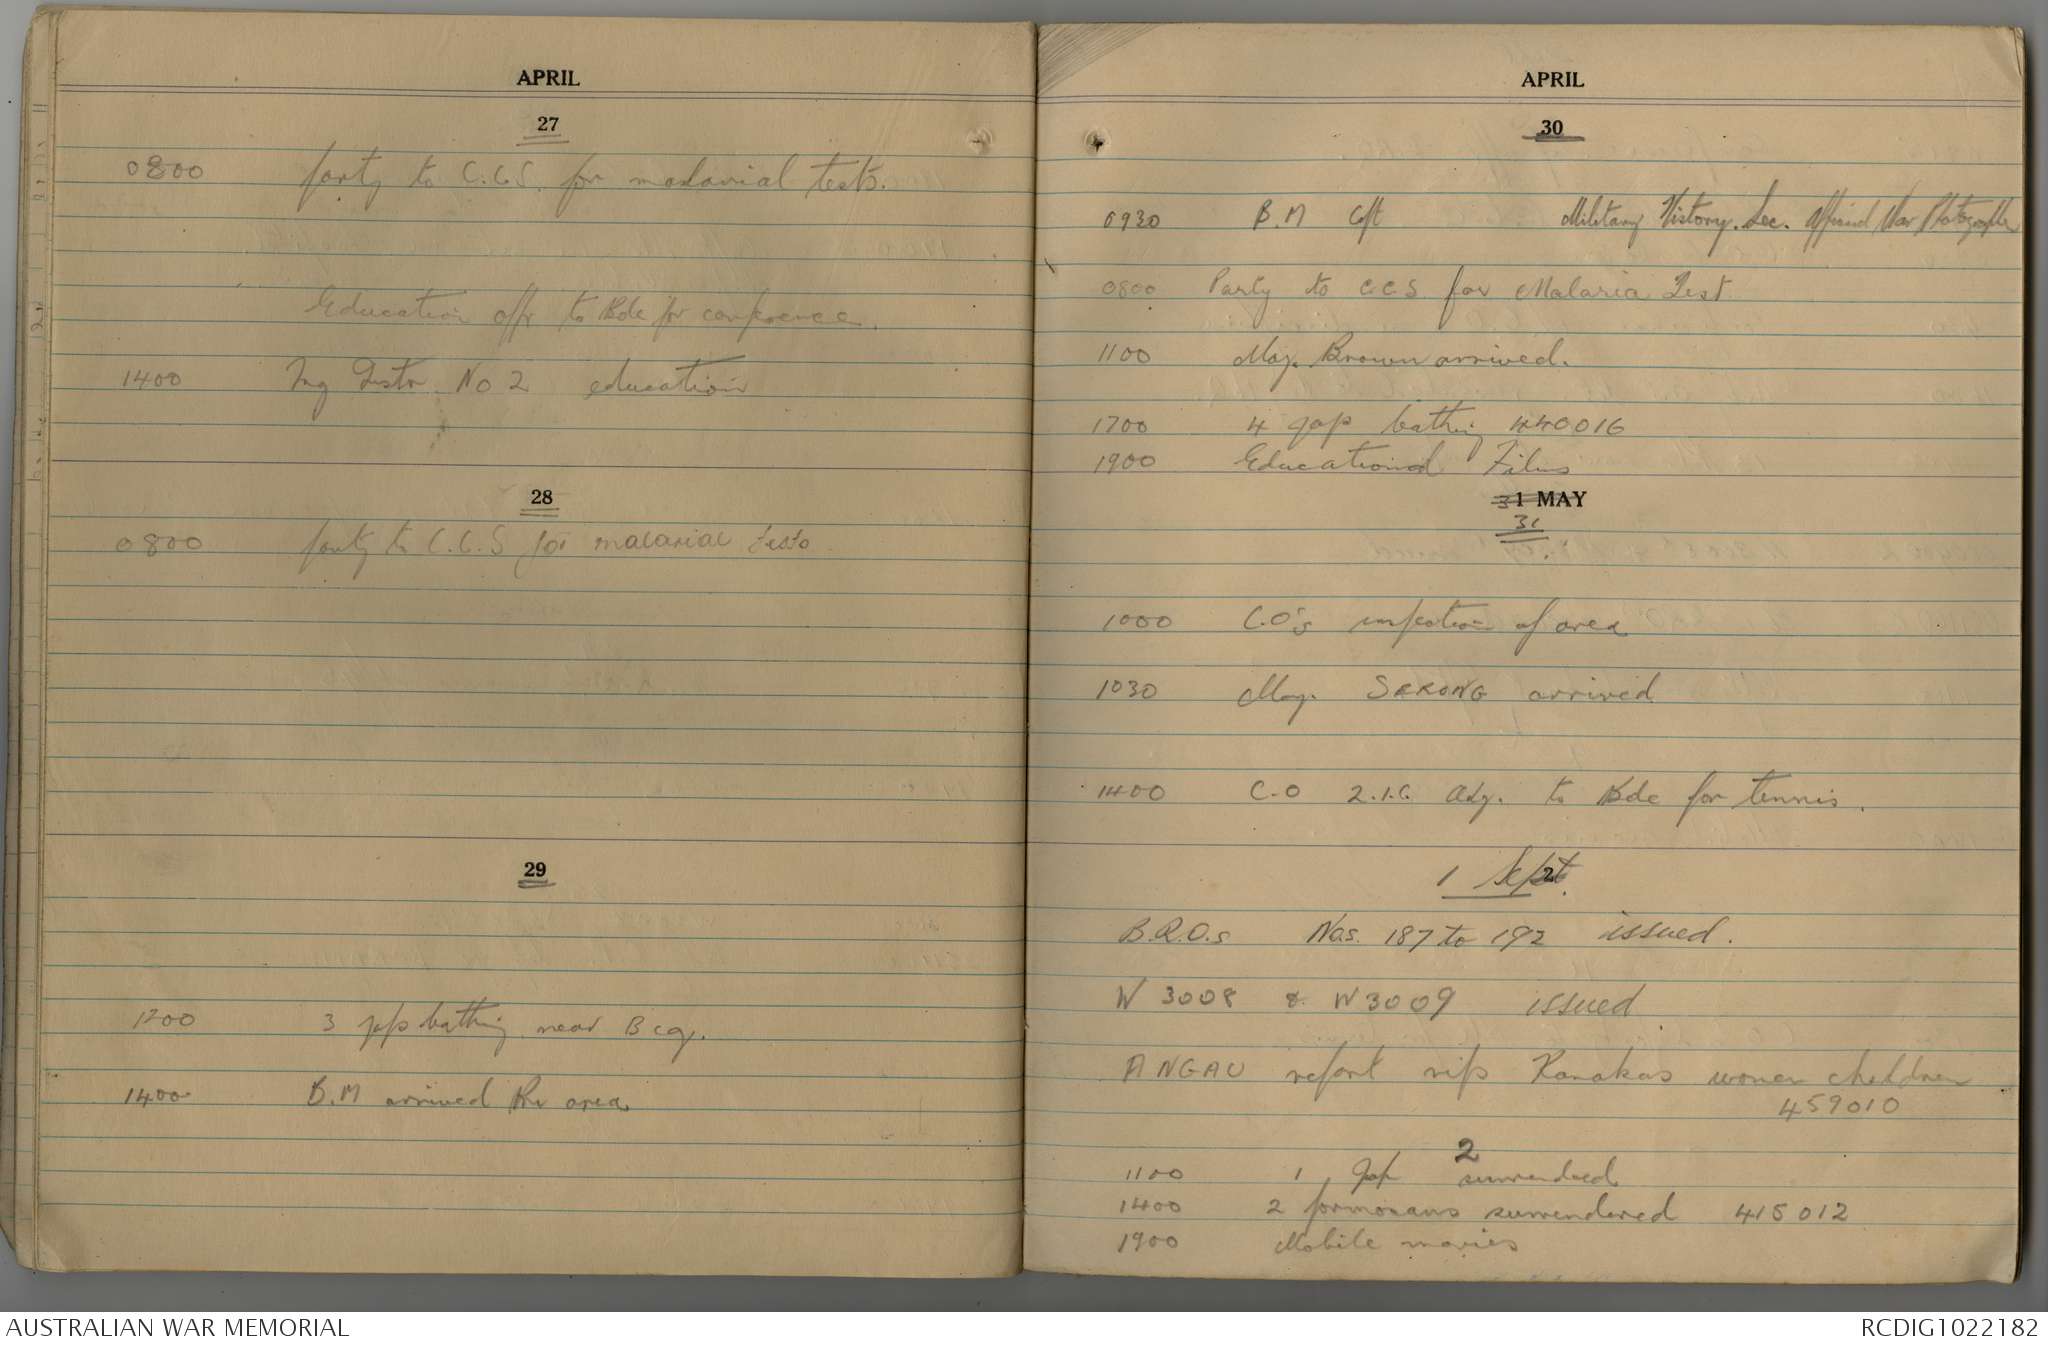 APRIL
27
0800 party to C.C.S. for malarial tests.
Education offr to Bde for conference.
1400 Trg Instn No 2 education
28
0800 party to C.C.S for malarial tests
29
1200 3 japs bathing near B coy.
1400 B.M arrived Bn area
APRIL
30
0930 B.M left Military History. Sec. Official War Photographer
0800 Party to C.C.S for Malaria Test
1100 Maj. Brown arrived.
1700 4 jap bathing 440016
1900 Educational Films
31 MAY
31
1000 C.O's inspection of area
1030 Maj. SERONG arrived
1400 C.O 2.I.C. Adj. to Bde for tennis.
1 Sept.
B.R.O.s Nos. 187 to 192 issued.
W 3008 & W 3009 issued
ANGAU report nips Kanakas women children
459010
2
1100 1 Jap surrendered
1400 2 formosans surrendered 415012
1900 Mobile movies
AUSTRALIAN WAR MEMORIAL
RCDIG1022182